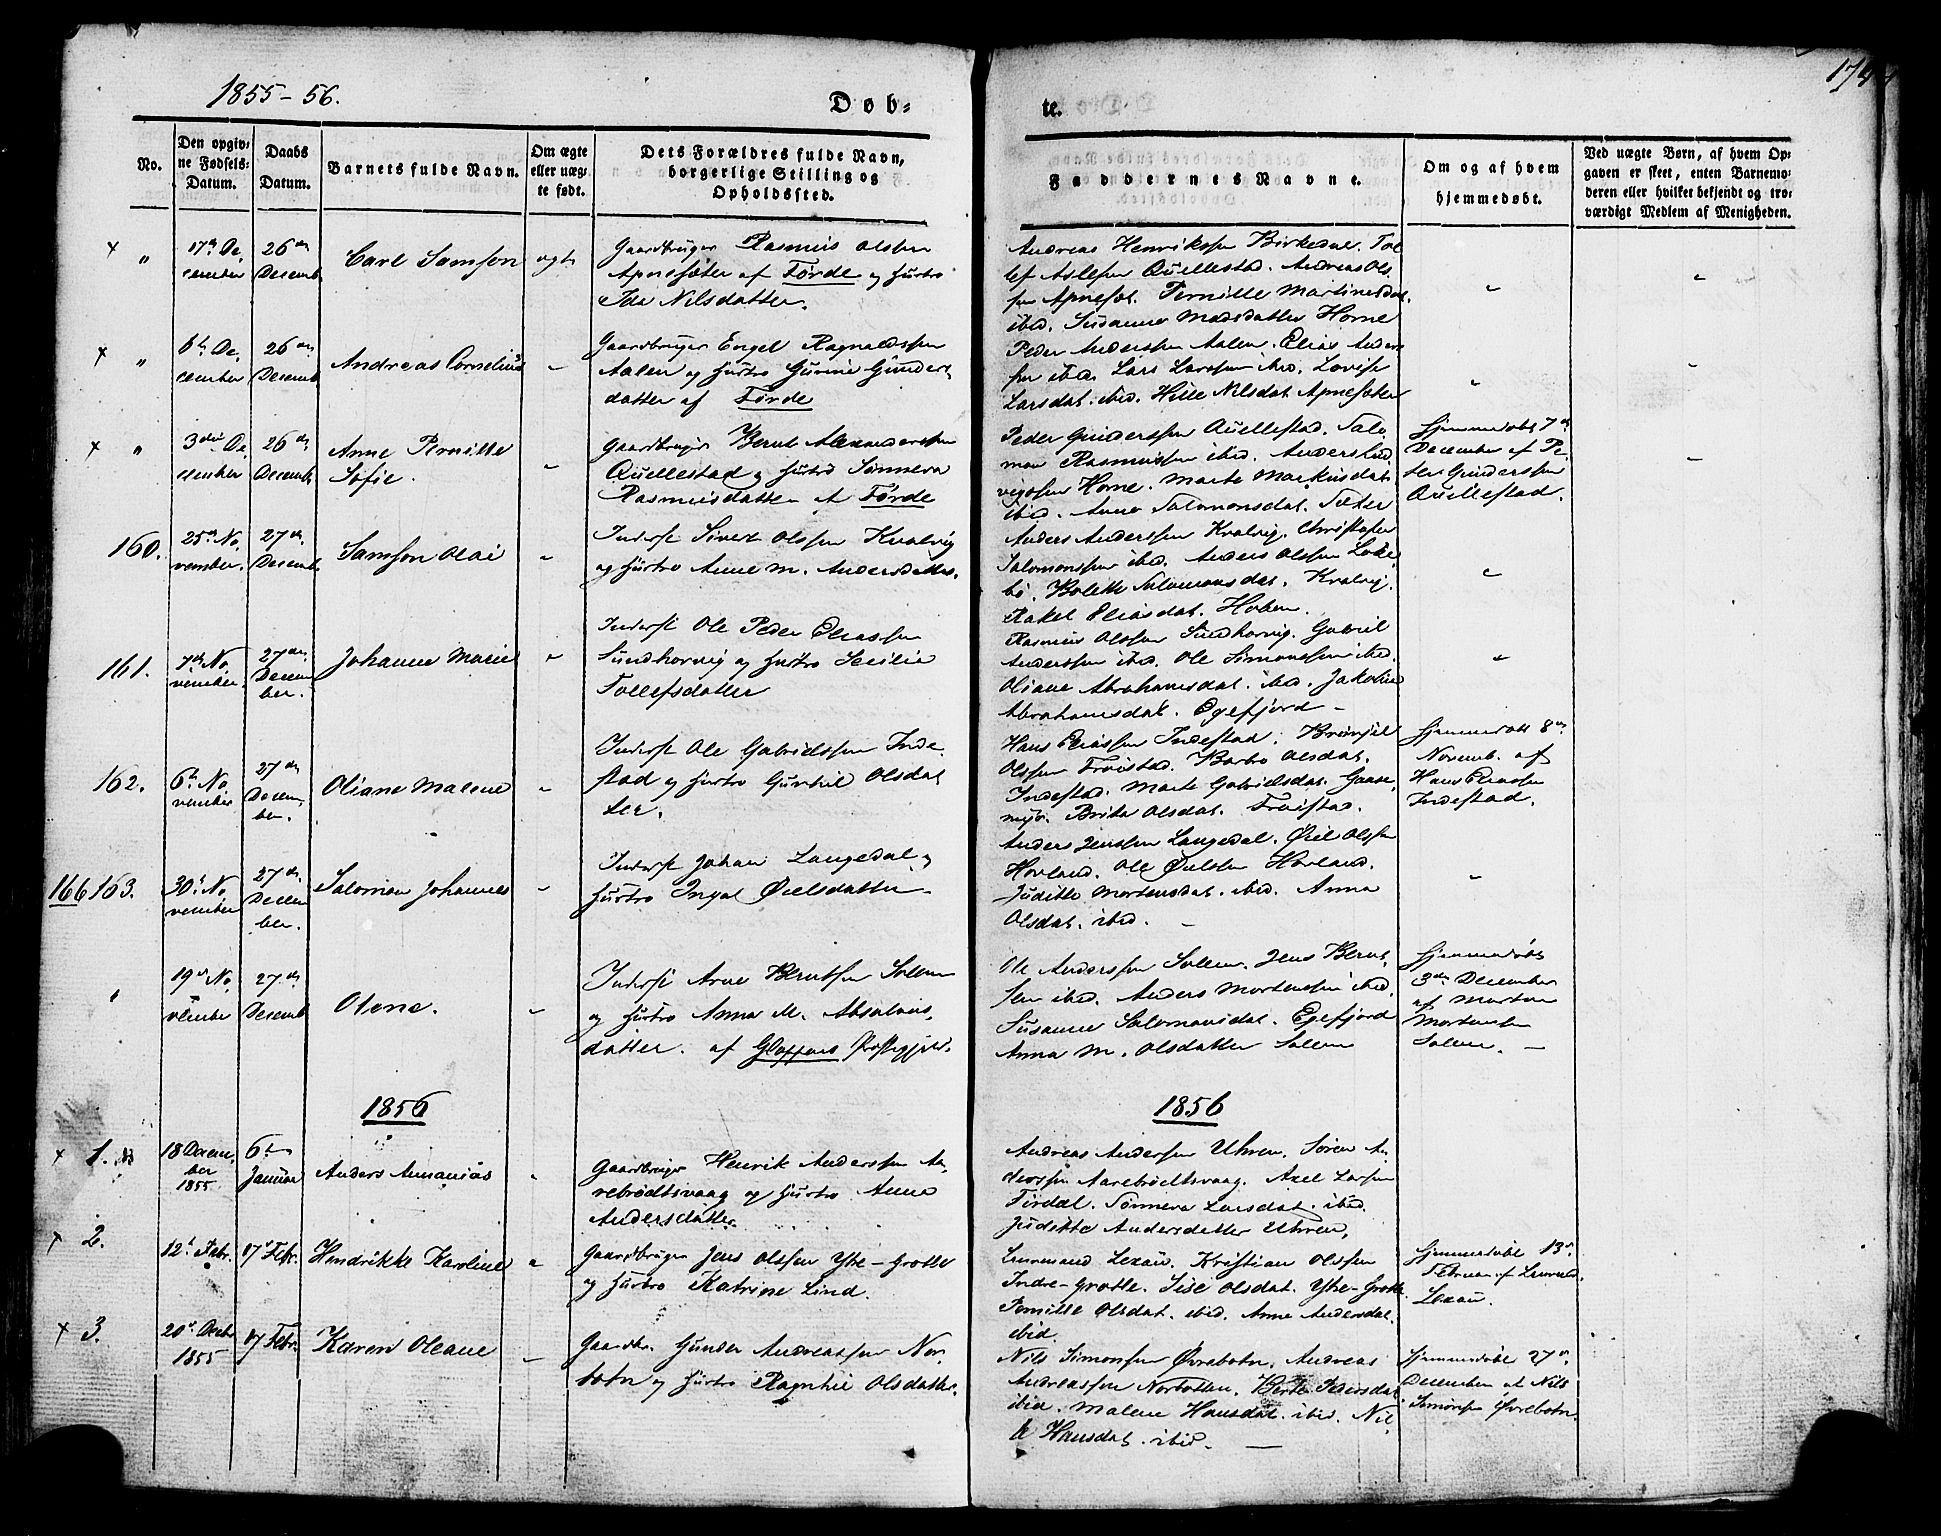 1855-56.
Døb-
te.
174
No.
Den opgiv-
ne Fødsels-
Datum.
Daabs
Datum.
Barnets fulde Navn.
Om ægte
eller uæg-
te født.
Dets Forældres fulde Navn,
borgerlige Stilling og
Opholdssted.
Faddernes Navne.
Om og af hvem
hjemmedøbt.
Ved uægte Børn, af hvem Op-
gaven er skeet, enten Barnemo-
deren eller hvilket bekjendt og tro-
værdigt Medlem af Menigheden.
× " 17de De-
cember
26de
Decemb
Carl Samson
ægt.
Gaardbruger Rasmus Olssen
Apnesæter af Førde og Hustro
Ide Nilsdatter.
Andreas Henrikssen Birkedal. Tol-
lef Aslessen Qvellestad. Andreas Ols-
sen Apneset. Pernille Martinusdat.
ibid. Susanne Madsdatter Horne
× " 6te De-
cember
26de
Decemb
Andreas Cornelius
Gaardbruger Engel Ragnaldssen
Aalen og Hustro Gurine Gunders-
datter af Førde
Peder Anderssen Aalen. Elias Anders-
sen ibid. Lars Larssen ibid. Lovise
Larsdat. ibid. Hille Nilsdat Apnesæter
× " 3die De-
cember
26de
Decemb
Anne Pernille
Sofie.
Gaardbruger Bernt Alexanderssen
Qvellestad og Hustro Sønneva
Rasmusdatter af Førde
Peder Gunderssen Qvellestad. Salo-
mon Rasmussen ibid. Anders Lud-
vigssen Horne. Marte Markusdat
ibid. Anne Salomonsdat. Sæter
Hjemmedøbt 7de
December af Pe-
der Gunderssen
Qvellestad.
160.
25de No-
vember.
27de
Decemb
Samson Olai
Inderst Sivert Olssen Kvalvig
og Hustro Anne M. Andersdatter.
Anders Anderssen Kvalvig. Christofer
Salomonssen ibid. Anders Olssen Løke-
bø. Bolette Salomonsdat. Kvalvig.
Rakel Eliasdat. Hoven.
161.
7de No-
vember.
27de
Decem-
ber.
Johanne Marie
Inderst Ole Peder Eliassen
Sundhorvig og Hustro Secilie
Tollefsdatter
Rasmus Olssen Sundhorvig. Gabriel
Anderssen ibid. Ole Simonssen ibid.
Oliane Abrahamsdat. ibid. Jakobine
Abrahamsdat. Egefjord –
162.
6te No-
vember
27de
Decem-
ber.
Oliane Malene
Inderst Ole Gabrielssen Inde-
stad og Hustro Gunhil Olsdat-
ter.
Hans Eliassen Indestad. Brønjel
Olssen Froistad. Barbo Olsdat.
Indestad. Marte Gabrielsdat. Gaase-
myr. Brita Olsdat. Froistad.
Hjemmedøbt 8de
Novemb. af
Hans Eliassen
Indestad.
166 163.
30te No-
vember
27de
Decem-
ber.
Salomon Johannes
Inderst Johan Langedal og
Hustro Ingal Øielsdatter
Anders Jenssen Langedal. Øiel Olssen
Hovland. Ole Øielssen Hovland.
Juditte Mortensdat. ibid. Anna
Olsdat. ibid. –
19de No-
vember
27de
Decemb
Olene.
Inderst Arne Berntsen Solem
og Hustro Anna M. Absalons-
datter. af Gloppens Præstegjeld.
Ole Anderssen Solem. Jens Bernt-
sen ibid. Anders Mortenssen ibid.
Susanne Salomonsdat. Egefjord
Anna M. Olsdatter Solem
Hjemmedøbt
3die December
af Morten
Mortensen
Solem. –
1856
1856
× 1.
18 Decem-
ber
1855
6te
Januar
Anders Annanias
Gaardbruger Henrik Anderssen Aa-
rebrødtsvaag og Hustro Anne
Andersdatter
Andreas Anderssen Uhren. Søren An-
derssen Aarebrødtsvaag. Axel Larssen
Førdal. Sønneva Larsdat. ibid.
Judikta Andersdatter Uhren.
× 2.
12te Febr.
17de Febr.
Hendrikke Karoline
Gaardbruger Jens Olssen Ytre-Grotle
og Hustro Katrine Lind.
Leurund Lexau. Kristian Olssen
Indre-Grotle. Sise Olsdat. Ytre-Grotle
Pernille Olsdat. ibid. Anne Andersdat.
ibid.
Hjemmedøbt 13de
Februar af Leurund
Lexau.
× 3.
20de Decbr
1855
17 Febr.
Karen Oleane
Gaardbr. Gunder Andreassen Nor-
botn og Hustro Ragnhil Olsdatter.
Nils Simonssen Øvrebotn. Andreas
Andreassen Norbotten. Berte Larsdat
ibid. Malene Hansdat. ibid. Nil-
le Hansdat. ibid. –
Hjemmedøbt 27de
December af Nils
Simonsen Øvrebotn.